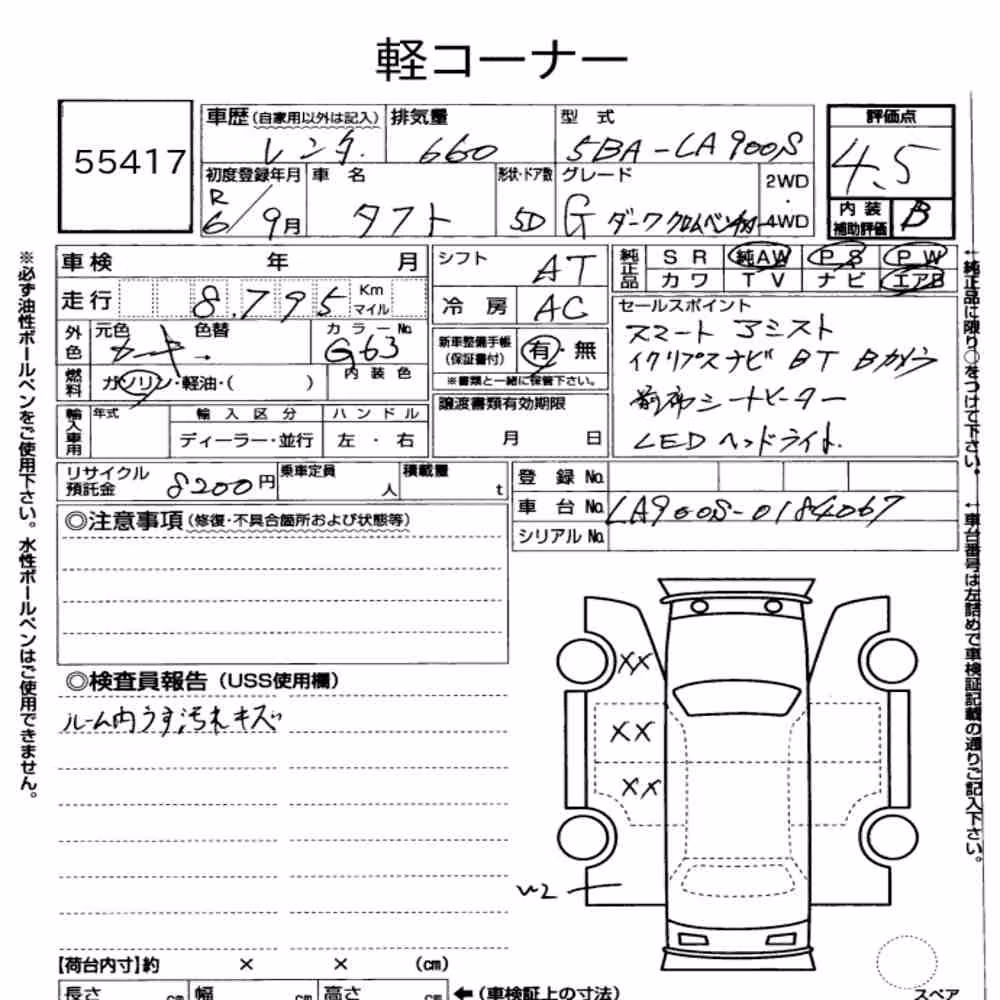 軽コーナー
55417
車歴 (自家用以外は記入) 排気量 型 式 評価点
レンタ. 660 5BA-LA900S 4.5
初度登録年月 車 名 形状・ドア数 グレード 2WD・4WD
R6/9月 タフト 5D G ダーククロムベンチャー
内装補助評価 B
車検 年 月
シフト AT
純正品 SR 純AW PS PW
カワ TV ナビ エアB
走行 8.795 Km マイル
冷房 AC
セールスポイント
スマートアシスト
イクリプスナビ BT Bカメラ
前席シートヒーター
LEDヘッドライト.
外色 元色 色替 カラーNo.
カーキ G63
新車整備手帳 (保証書付) 有・無
※書類と一緒に保管下さい。
燃料 ガソリン・軽油・( ) 内装色
譲渡書類有効期限
月 日
輸入車用 年式 輸入区分 ハンドル
ディーラー・並行 左・右
リサイクル預託金 8200円 乗車定員 人 積載量 t
登録No.
車台No. LA900S-0184067
シリアルNo.
◎注意事項 (修復・不具合箇所および状態等)
◎検査員報告 (USS使用欄)
ルーム内うす汚れキズ
XX
XX
XX
W2
【荷台内寸】約 × × (cm)
長さ cm 幅 cm 高さ cm ←(車検証上の寸法)
スペア
※必ず油性ボールペンをご使用下さい。水性ボールペンはご使用できません。
←純正品に限り○をつけて下さい。
←車台番号は左詰めで車検証記載の通りご記入下さい。